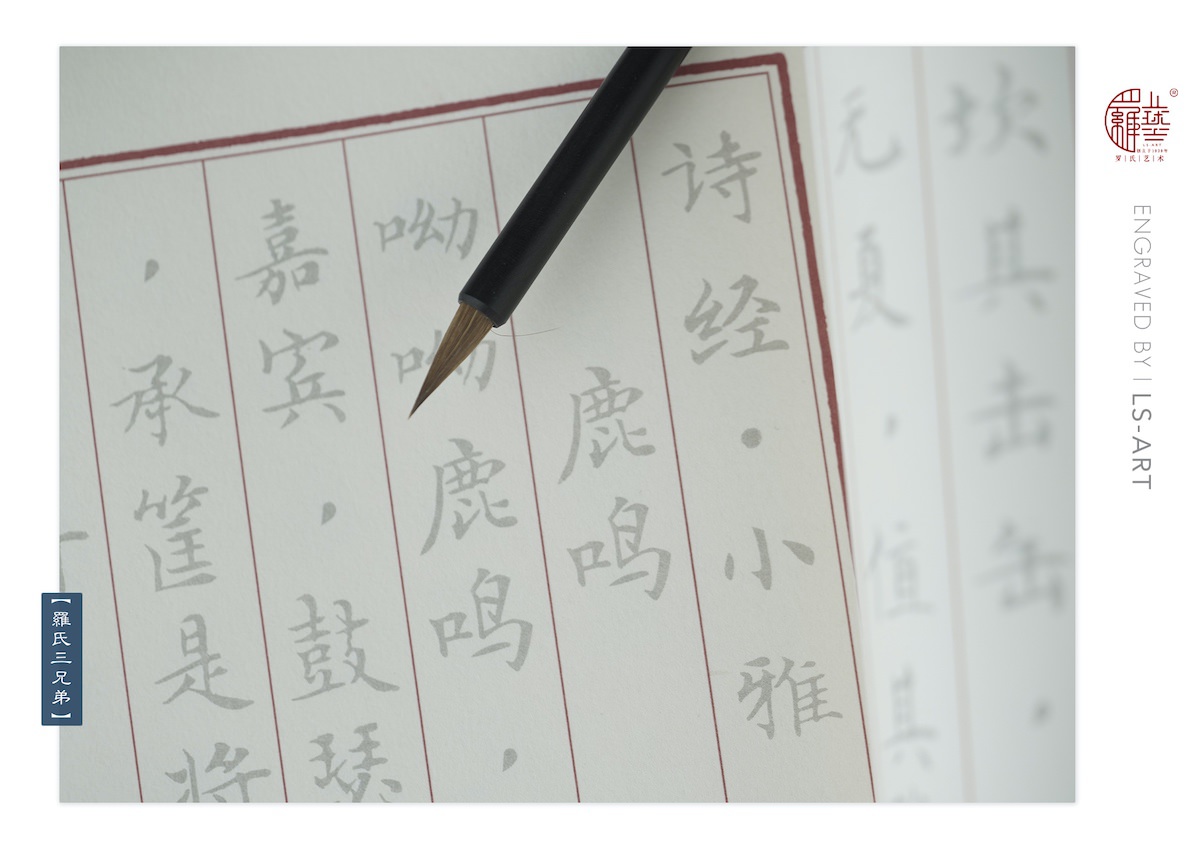 坎其击缶，
无夏，值其
诗经·小雅
鹿鸣
呦呦鹿鸣，
嘉宾，鼓瑟
，承筐是将
【羅氏三兄弟】
罗氏艺术
ENGRAVED BY | LS-ART